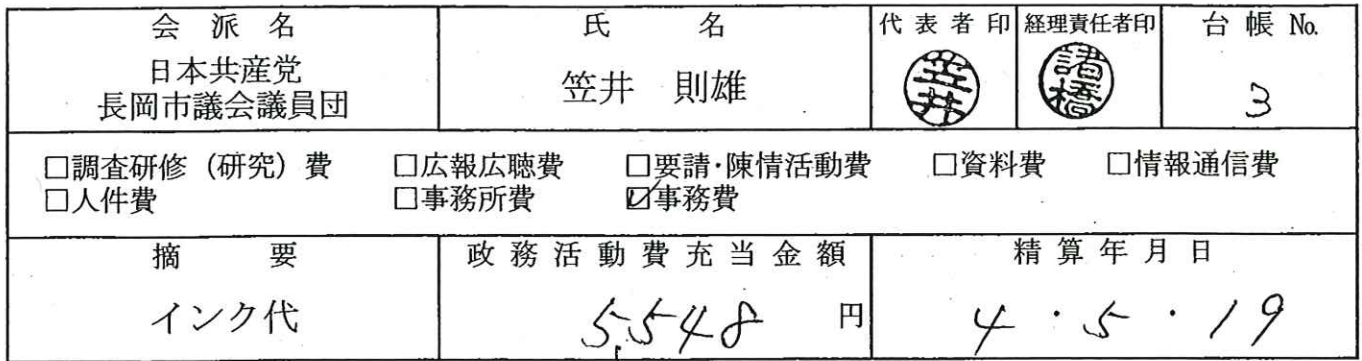 会派名 氏名 代表者印 経理責任者印 台帳No.
日本共産党
長岡市議会議員団 笠井 則雄 笠井 諸橋 3
□調査研修(研究)費 □広報広聴費 □要請・陳情活動費 □資料費 □情報通信費
□人件費 □事務所費 ☑事務費
摘要 政務活動費充当金額 精算年月日
インク代 5,548円 4・5・19